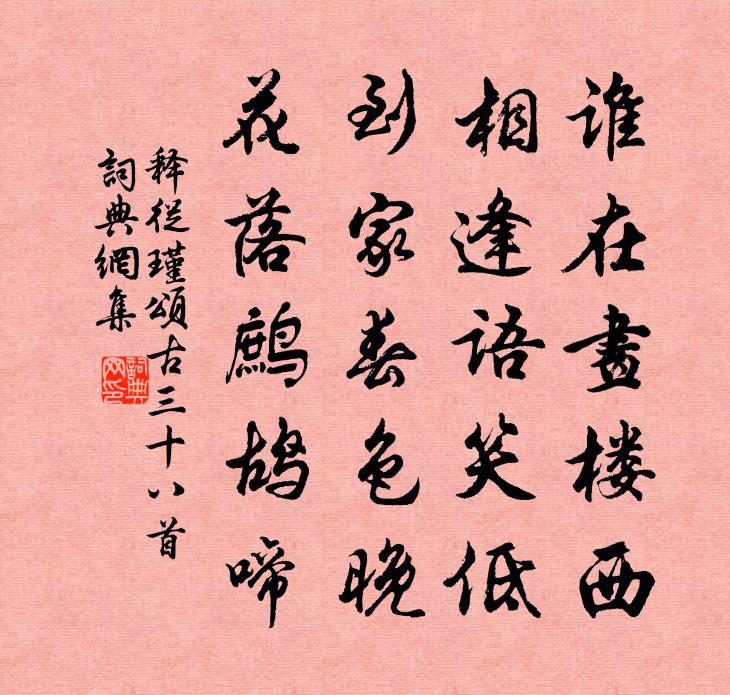 谁在畫楼西
相逢語笑低
到家春色晚
花落鷓鸪啼
释從瑾頌古三十八首
詞典網集
詞典网印